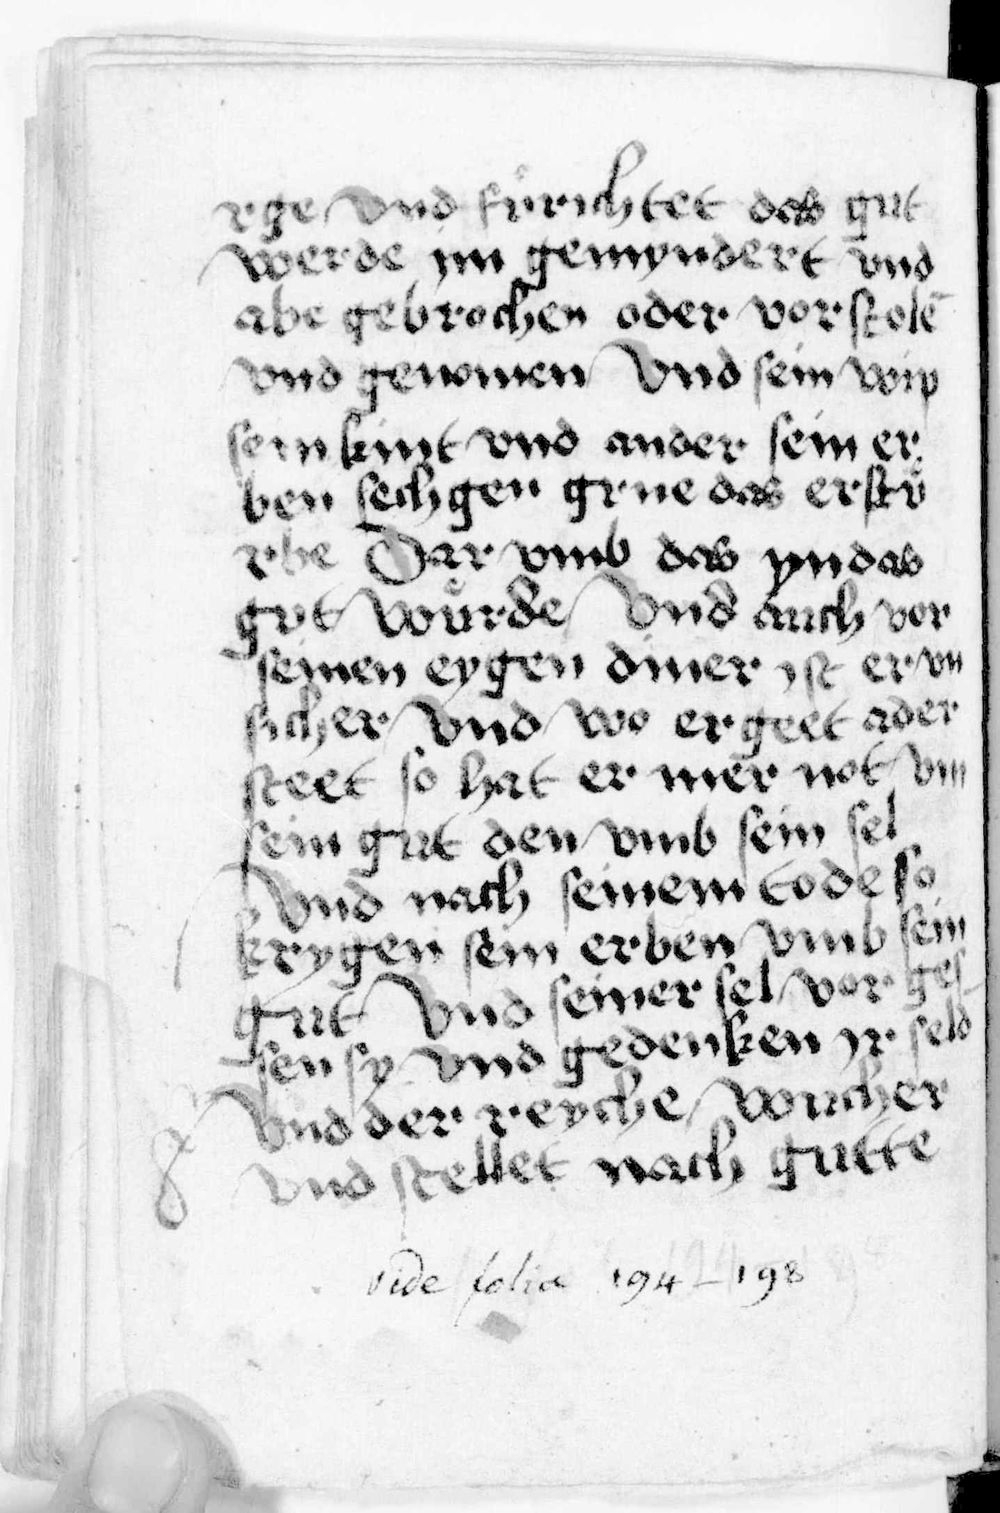 rge vnd fürichtet das gut
werde ym gemyndert vnd
abe gebrochen oder vorstolē
vnd genomen Vnd sein wip
sein kint vnd ander sein er
ben sechgen grne das erstů
rbe Dar vmb das yn das
gut wůrde Vnd auch vor
seinen eygen diner ist er vn
sicher Vnd wo er geet ader
steet so hat er mer not vm
sein gut den vmb sein sel
Vnd nach seinem tode so
krygen sein erben vmb sein
gut Vnd seiner sel vor ges
sen sy vnd gedenken ir seld
Vnd der reyche wucher
vnd stellet nach gutte
vide folia 194 – 198